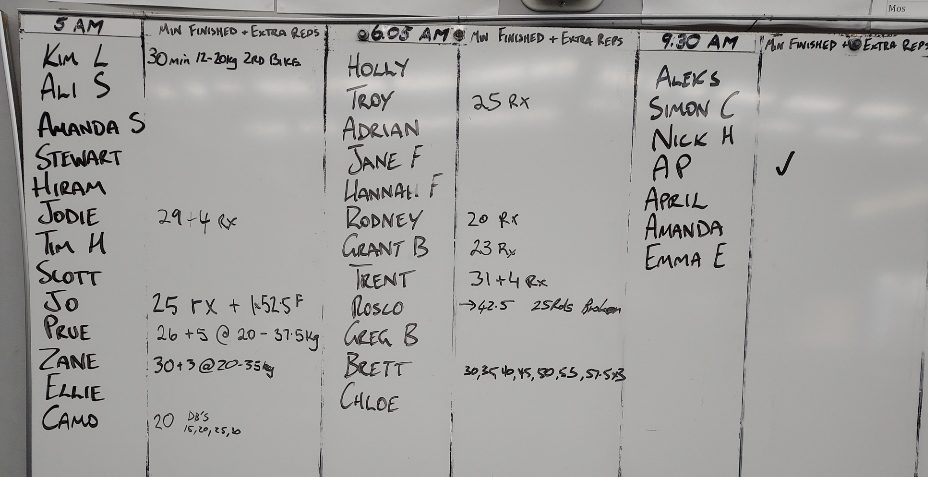 Mos
5 AM MIN FINISHED + EXTRA REPS
KIM L 30 min 12-20kg 2RD BIKES
ALI S
AMANDA S
STEWART
HIRAM
JODIE 29+4 RX
TIM H
SCOTT
JO 25 rx + 1x52.5 F
PRUE 26+5 @ 20-37.5kg
ZANE 30+3 @ 20-35kg
ELLIE
CAMO 20 DB'S
15,20,25,10
6.05 AM MIN FINISHED + EXTRA REPS
HOLLY
TROY 25 RX
ADRIAN
JANE F
HANNAH F
RODNEY 20 RX
GRANT B 23 RX
TRENT 31+4 RX
ROSCO →42.5 25Rds
GREG B
BRETT 30,35,40,45,50,55,57.5x3
CHLOE
9.30 AM MIN FINISHED + EXTRA REPS
ALEKS
SIMON C
NICK H
AP ✓
APRIL
AMANDA
EMMA E